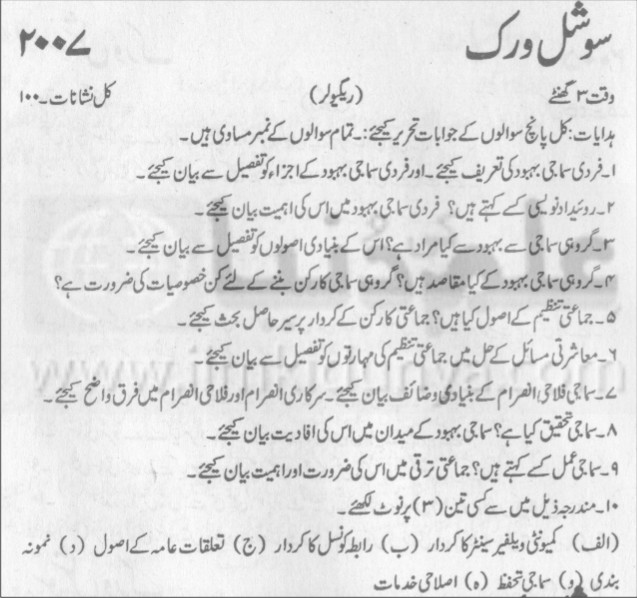 سوشل ورک ۲۰۰۷
وقت ۳ گھنٹے (ریگولر) کل نشانات۔۱۰۰
ہدایات: کل پانچ سوالوں کے جوابات تحریر کیجئے:۔تمام سوالوں کے نمبر مساوی ہیں۔
۱۔فردی سماجی بہبود کی تعریف کیجئے۔اور فردی سماجی بہبود کے اجزاء کو تفصیل سے بیان کیجئے۔
۲۔روئیداد نویسی کسے کہتے ہیں؟ فردی سماجی بہبود میں اس کی اہمیت بیان کیجئے۔
۳۔گروہی سماجی سے بہبود سے کیا مراد ہے؟ اس کے بنیادی اصولوں کو تفصیل سے بیان کیجئے۔
۴۔گروہی سماجی بہبود کے کیا مقاصد ہیں؟ گروہی سماجی کارکن بننے کے لئے کن خصوصیات کی ضرورت ہے؟
۵۔جماعتی تنظیم کے اصول کیا ہیں؟ جماعتی کارکن کے کردار پر سیر حاصل بحث کیجئے۔
۶۔معاشرتی مسائل کے حل میں جماعتی تنظیم کی مہارتوں کو تفصیل سے بیان کیجئے
۷۔سماجی فلاحی انصرام کے بنیادی وضائف بیان کیجئے۔سرکاری انصرام اور فلاحی انصرام میں فرق واضح کیجئے۔
۸۔سماجی تحقیق کیا ہے؟ سماجی بہبود کے میدان میں اس کی افادیت بیان کیجئے۔
۹۔سماجی عمل کسے کہتے ہیں؟ جماعتی ترقی میں اس کی ضرورت اور اہمیت بیان کیجئے۔
۱۰۔مندرجہ ذیل میں سے کسی تین (۳) پر نوٹ لکھئے۔
(الف) کمیونٹی ویلفیر سینٹر کا کردار (ب) رابطہ کونسل کا کردار (ج) تعلقات عامہ کے اصول (د) نمونہ
بندی (و) سماجی تحفظ (ہ) اصلاحی خدمات